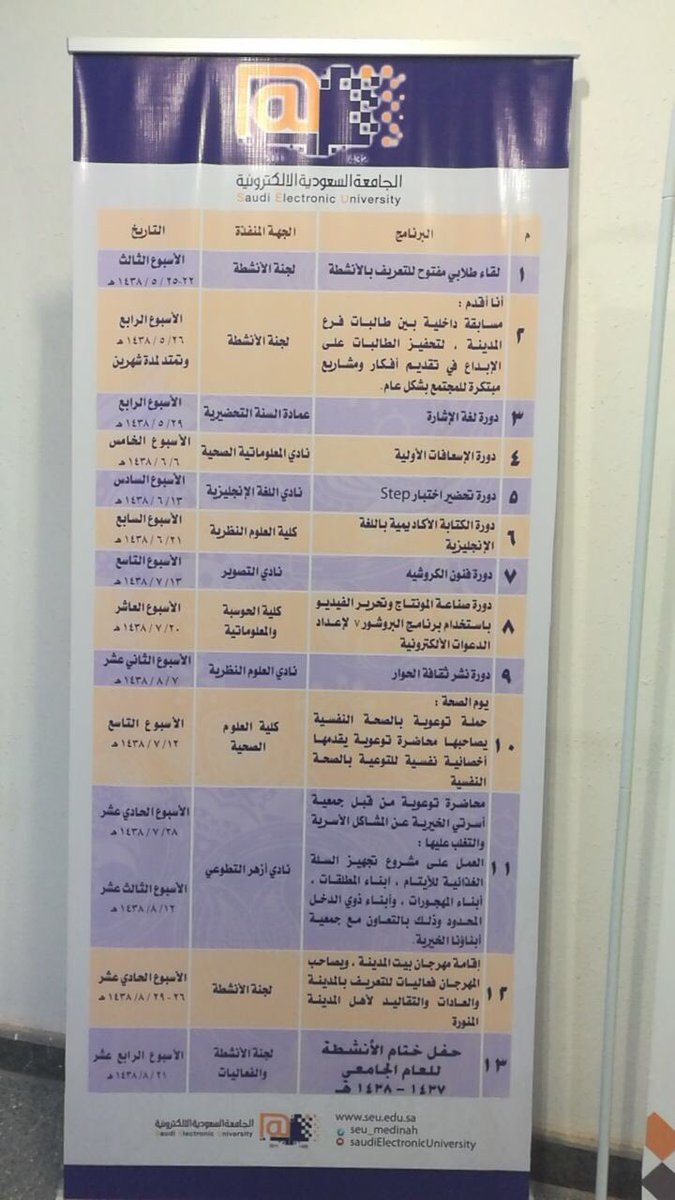 الجامعة السعودية الالكترونية
Saudi Electronic University
م البرنامج الجهة المنفذة التاريخ
١ لقاء طلابي مفتوح للتعريف بالأنشطة لجنة الأنشطة الأسبوع الثالث
٢٢-٢٥ / ٥ / ١٤٣٨ هـ
٢ أنا أقدم :
مسابقة داخلية بين طالبات فرع
المدينة ، لتحفيز الطالبات على
الإبداع في تقديم أفكار ومشاريع
مبتكرة للمجتمع بشكل عام.
لجنة الأنشطة
الأسبوع الرابع
٢٦ / ٥ / ١٤٣٨ هـ
وتمتد لمدة شهرين
٣ دورة لغة الإشارة عمادة السنة التحضيرية الأسبوع الرابع
٢٩ / ٥ / ١٤٣٨ هـ
٤ دورة الإسعافات الأولية نادي المعلوماتية الصحية الأسبوع الخامس
٦ / ٦ / ١٤٣٨ هـ
٥ دورة تحضير اختبار Step نادي اللغة الإنجليزية الأسبوع السادس
١٣ / ٦ / ١٤٣٨ هـ
٦ دورة الكتابة الأكاديمية باللغة
الإنجليزية
كلية العلوم النظرية
الأسبوع السابع
٢١ / ٦ / ١٤٣٨ هـ
٧ دورة فنون الكروشيه نادي التصوير الأسبوع التاسع
١٣ / ٧ / ١٤٣٨ هـ
٨ دورة صناعة المونتاج وتحرير الفيديو
باستخدام برنامج البروشور ٧ لإعداد
الدعوات الألكترونية
كلية الحوسبة
والمعلوماتية
الأسبوع العاشر
٢٠ / ٧ / ١٤٣٨ هـ
٩ دورة نشر ثقافة الحوار نادي العلوم النظرية الأسبوع الثاني عشر
٧ / ٨ / ١٤٣٨ هـ
١٠ يوم الصحة :
حملة توعوية بالصحة النفسية
يصاحبها محاضرة توعوية يقدمها
أخصائية نفسية للتوعية بالصحة
النفسية
كلية العلوم
الصحية
الأسبوع التاسع
١٢ / ٧ / ١٤٣٨ هـ
١١ محاضرة توعوية من قبل جمعية
أسرتي الخيرية عن المشاكل الأسرية
والتغلب عليها :
العمل على مشروع تجهيز السلة
الغذائية للأيتام ، ابناء المطلقات ،
أبناء المهجورات ، وأبناء ذوي الدخل
المحدود وذلك بالتعاون مع جمعية
أبناؤنا الخيرية.
نادي أزهر التطوعي
الأسبوع الحادي عشر
٢٨ / ٧ / ١٤٣٨ هـ
الأسبوع الثالث عشر
١٢ / ٨ / ١٤٣٨ هـ
١٢ إقامة مهرجان بيت المدينة ، ويصاحب
المهرجان فعاليات للتعريف بالمدينة
والعادات والتقاليد لأهل المدينة
المنورة
لجنة الأنشطة
الأسبوع الحادي عشر
٢٦-٢٩ / ٨ / ١٤٣٨ هـ
١٣ حفل ختام الأنشطة
للعام الجامعي
١٤٣٧ – ١٤٣٨ هـ
لجنة الأنشطة
والفعاليات
الأسبوع الرابع عشر
٢١ / ٨ / ١٤٣٨ هـ
الجامعة السعودية الالكترونية
Saudi Electronic University
www.seu.edu.sa
seu_medinah
saudiElectronicUniversity